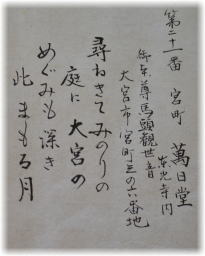 第二十一番 宮町 萬日堂
東光寺内
御本尊馬頭觀世音
大宮市宮町三の六番地
尋ねきてみのりの
庭に大宮の
めぐみも深き
此まもる月